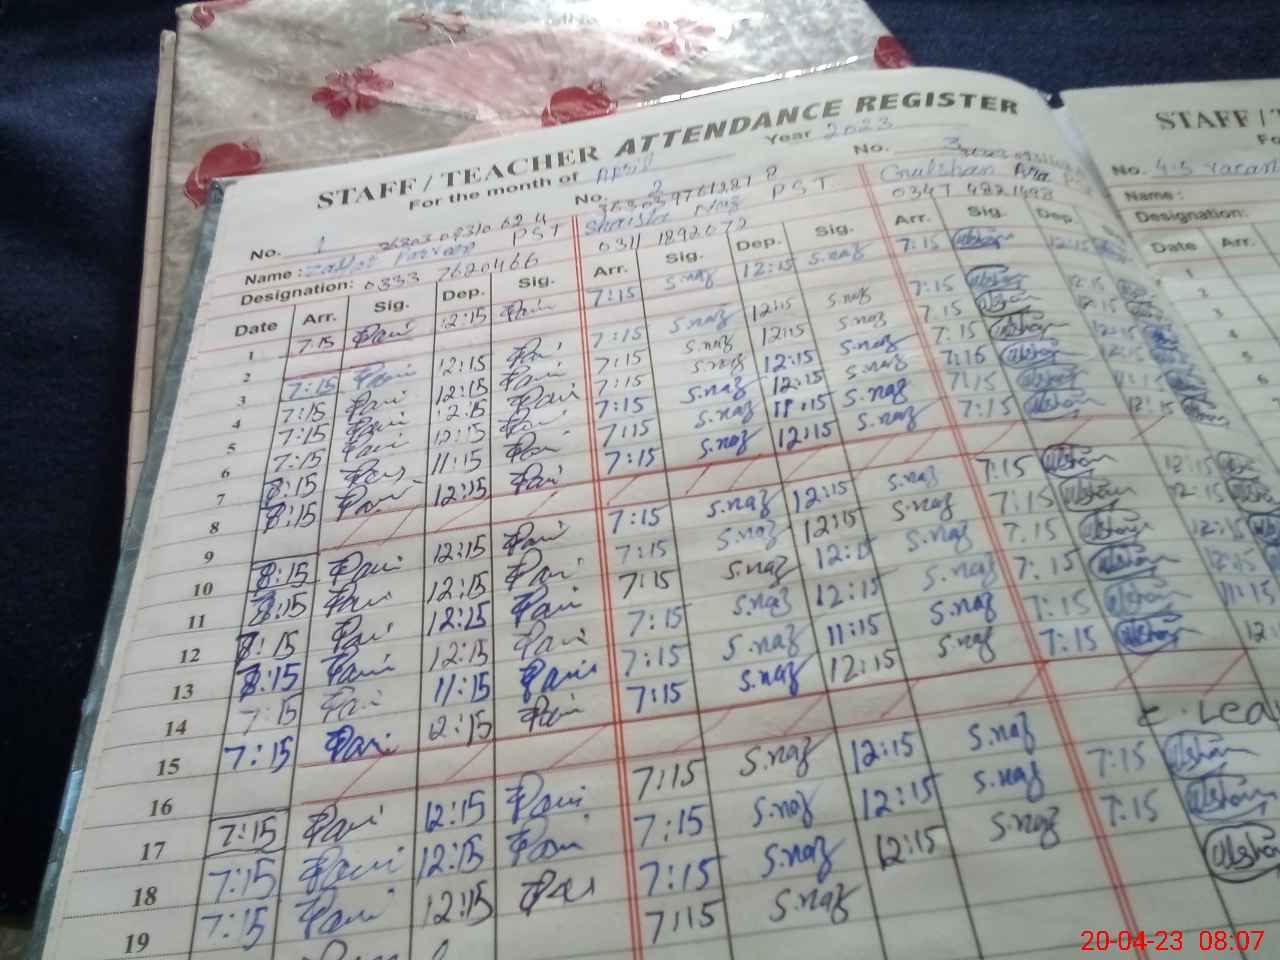 STAFF / TEACHER ATTENDANCE REGISTER
For the month of April Year 2023
No. 1
Name: PST
Designation: 0333 7620466
No. 2
Shaista Naz PST
0311 1892072
No. 3
Gulshan Ara
0347 4821498
Date Arr. Sig. Dep. Sig. Arr. Sig. Dep. Sig. Arr. Sig. Dep.
1 7:15 Pari 12:15 Pari 7:15 S.naz 12:15 S.naz 7:15 Gulshan 12:15
2
3 7:15 Pari 12:15 Pari 7:15 S.naz 12:15 S.naz 7:15 Gulshan 12:15
4 7:15 Pari 12:15 Pari 7:15 S.naz 12:15 S.naz 7:15 Gulshan 12:15
5 7:15 Pari 12:15 Pari 7:15 S.naz 12:15 S.naz 7:15 Gulshan 12:15
6 7:15 Pari 12:15 Pari 7:15 S.naz 12:15 S.naz 7:15 Gulshan
7 8:15 11:15 Pari 7:15 S.naz 11:15 S.naz 7:15 Gulshan 11:15
8 8:15 Pari 12:15 Pari 7:15 S.naz 12:15 S.naz 7:15 Gulshan 12:15
9
10 8:15 Pari 12:15 Pari 7:15 S.naz 12:15 S.naz 7:15 Gulshan 12:15
11 8:15 Pari 12:15 Pari 7:15 S.naz 12:15 S.naz 7:15 Gulshan 12:15
12 8:15 Pari 12:15 Pari 7:15 S.naz 12:15 S.naz 7:15 Gulshan 12:15
13 8:15 Pari 12:15 Pari 7:15 S.naz 12:15 S.naz 7:15 Gulshan 12:15
14 7:15 Pari 11:15 Pari 7:15 S.naz 11:15 S.naz 7:15 Gulshan 11:15
15 7:15 Pari 12:15 Pari 7:15 S.naz 12:15 S.naz 7:15 Gulshan
16
17 7:15 Pari 12:15 Pari 7:15 S.naz 12:15 S.naz
18 7:15 Pari 12:15 Pari 7:15 S.naz 12:15 S.naz 7:15 Gulshan
19 7:15 Pari 12:15 Pari 7:15 S.naz 12:15 S.naz 7:15 Gulshan
7:15 S.naz Gulshan
STAFF / T
No. 4-5
Name:
Designation:
Date Arr.
1
2
3
4
5
6
20-04-23 08:07